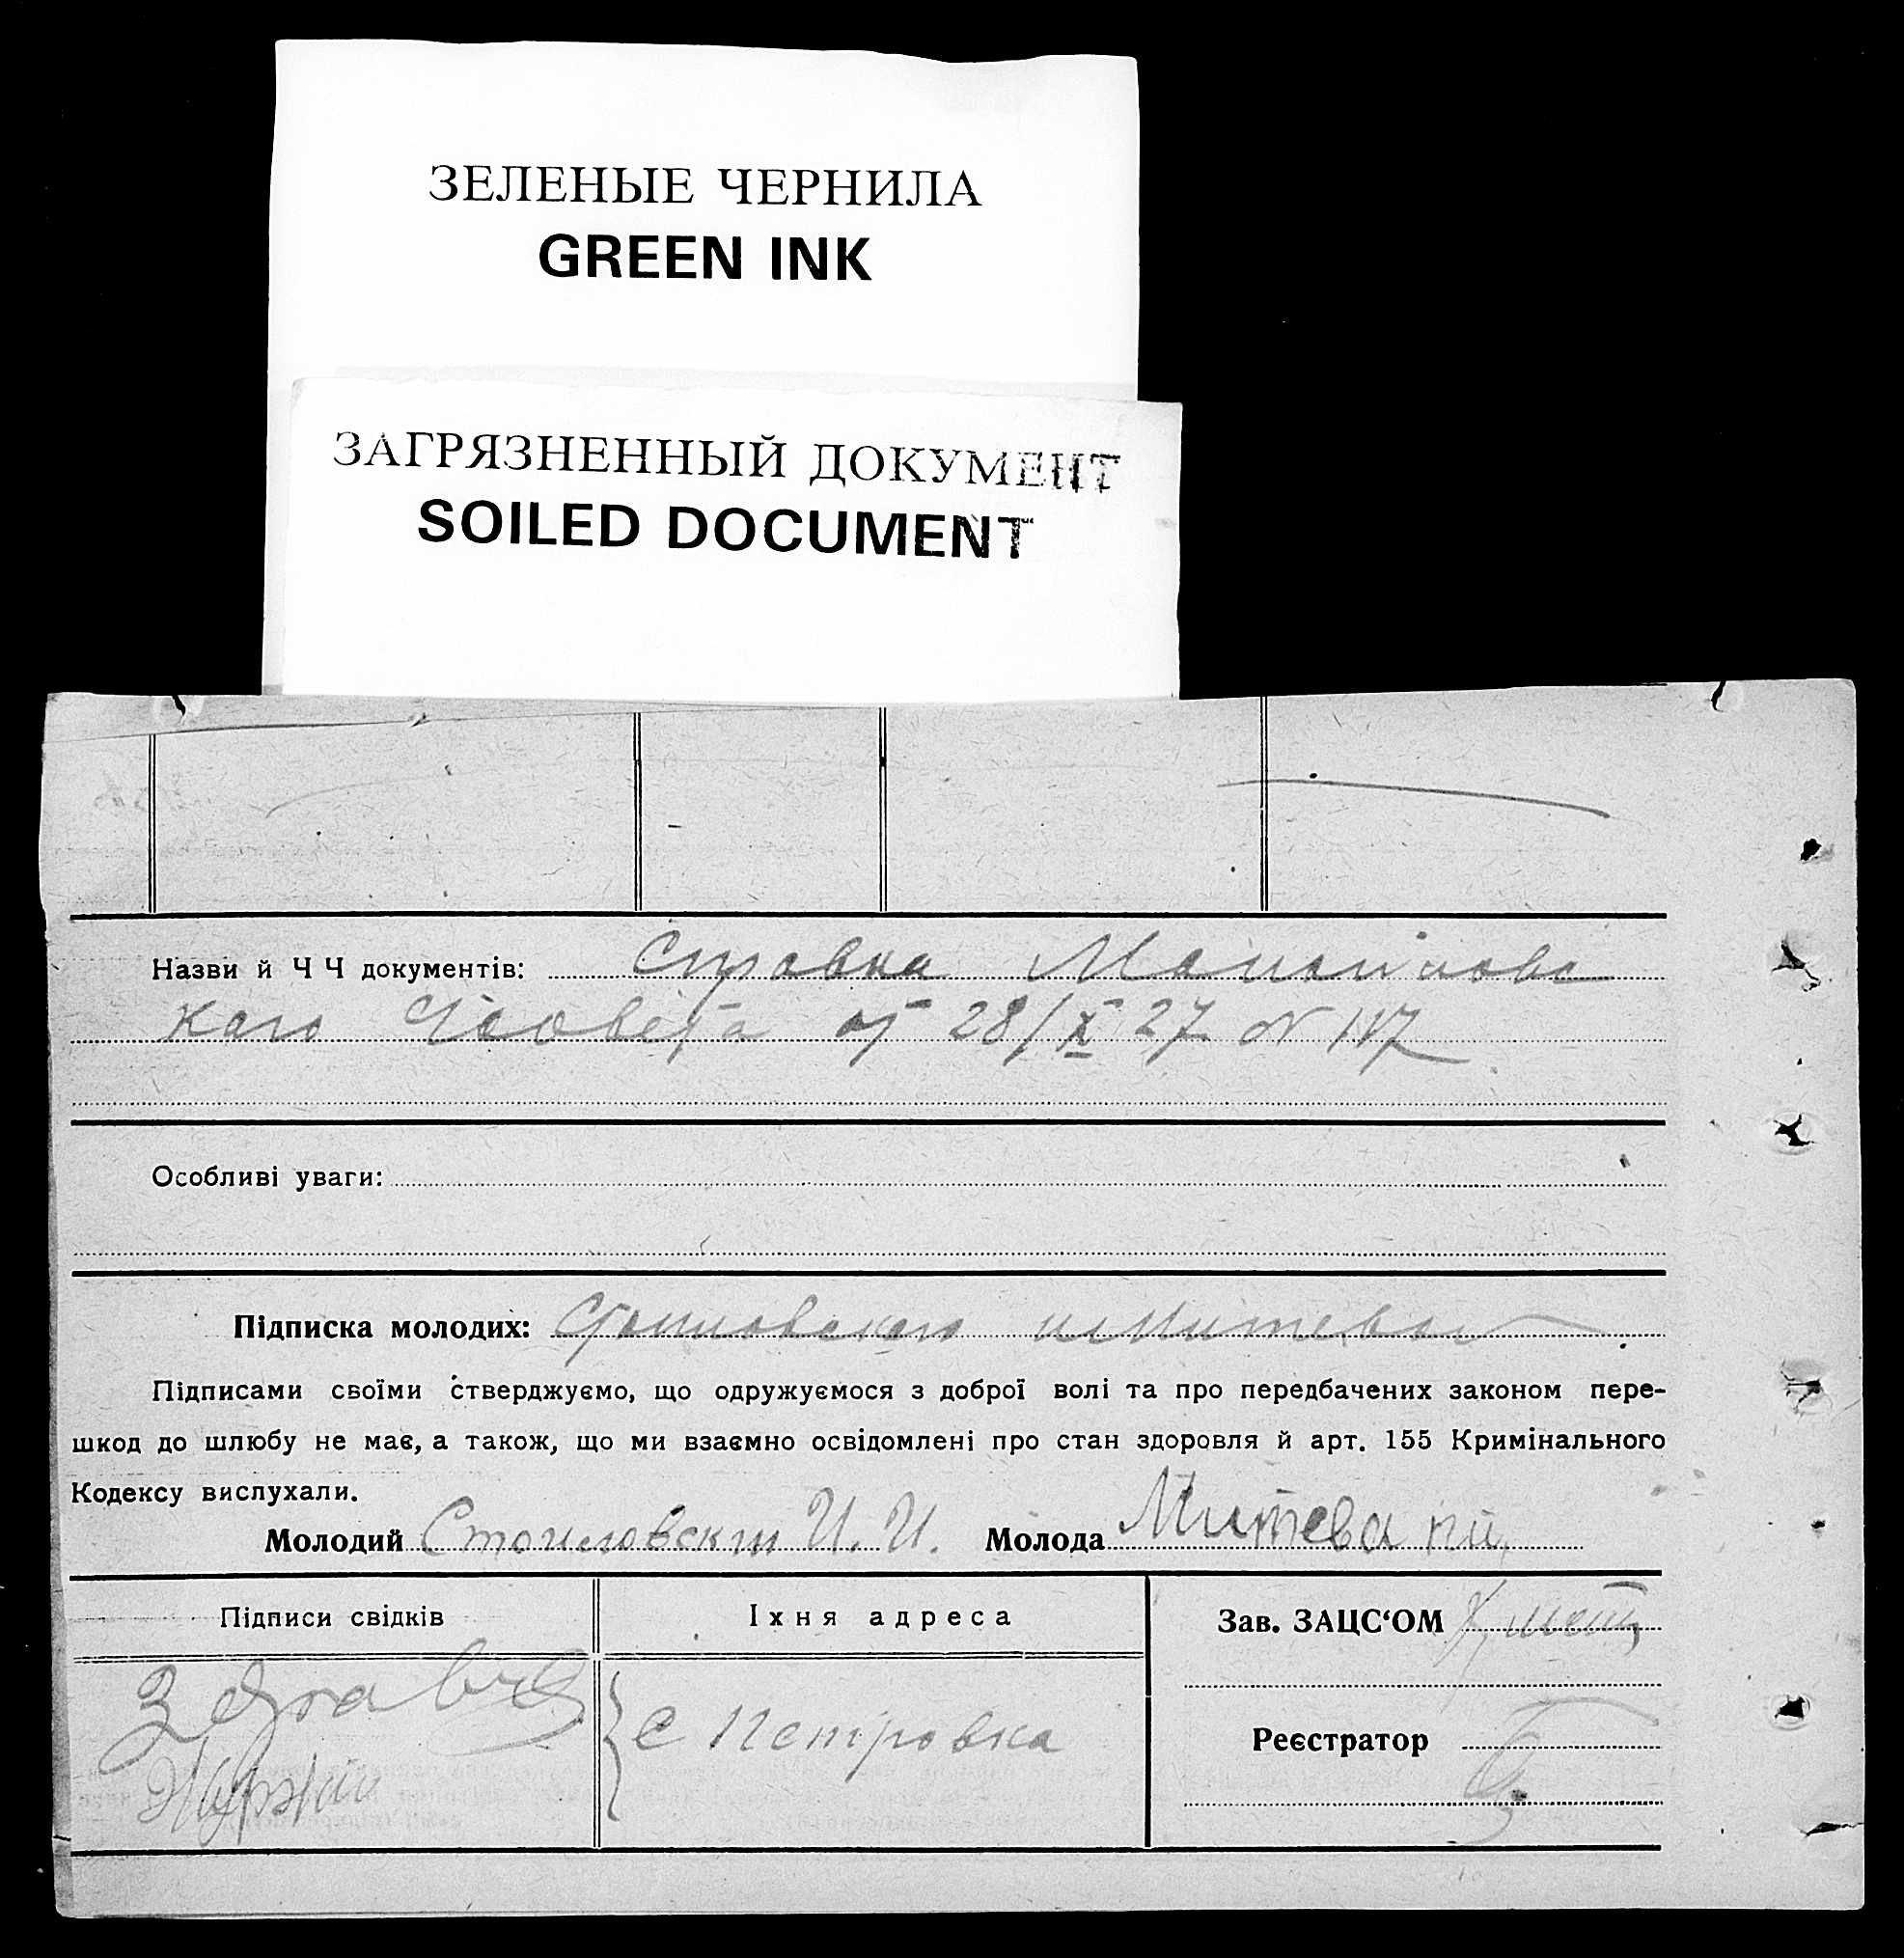 ЗЕЛЕНЫЕ ЧЕРНИЛА
GREEN INK
ЗАГРЯЗНЕННЫЙ ДОКУМЕНТ
SOILED DOCUMENT
Назви й Ч Ч документів: Справка
кого от 28/X 27 N 117
Особливі уваги:
Підписка молодих: Стоиловского и Митевой
Підписами своїми стверджуємо, що одружуємося з доброї волі та про передбачених законом пере-
шкод до шлюбу не має, а також, що ми взаємно освідомлені про стан здоровля й арт. 155 Кримінального
Кодексу вислухали.
Молодий Стоиловский И. И. Молода Митева
Підписи свідків Їхня адреса Зав. ЗАЦС‘ОМ
с Петровка
Реєстратор